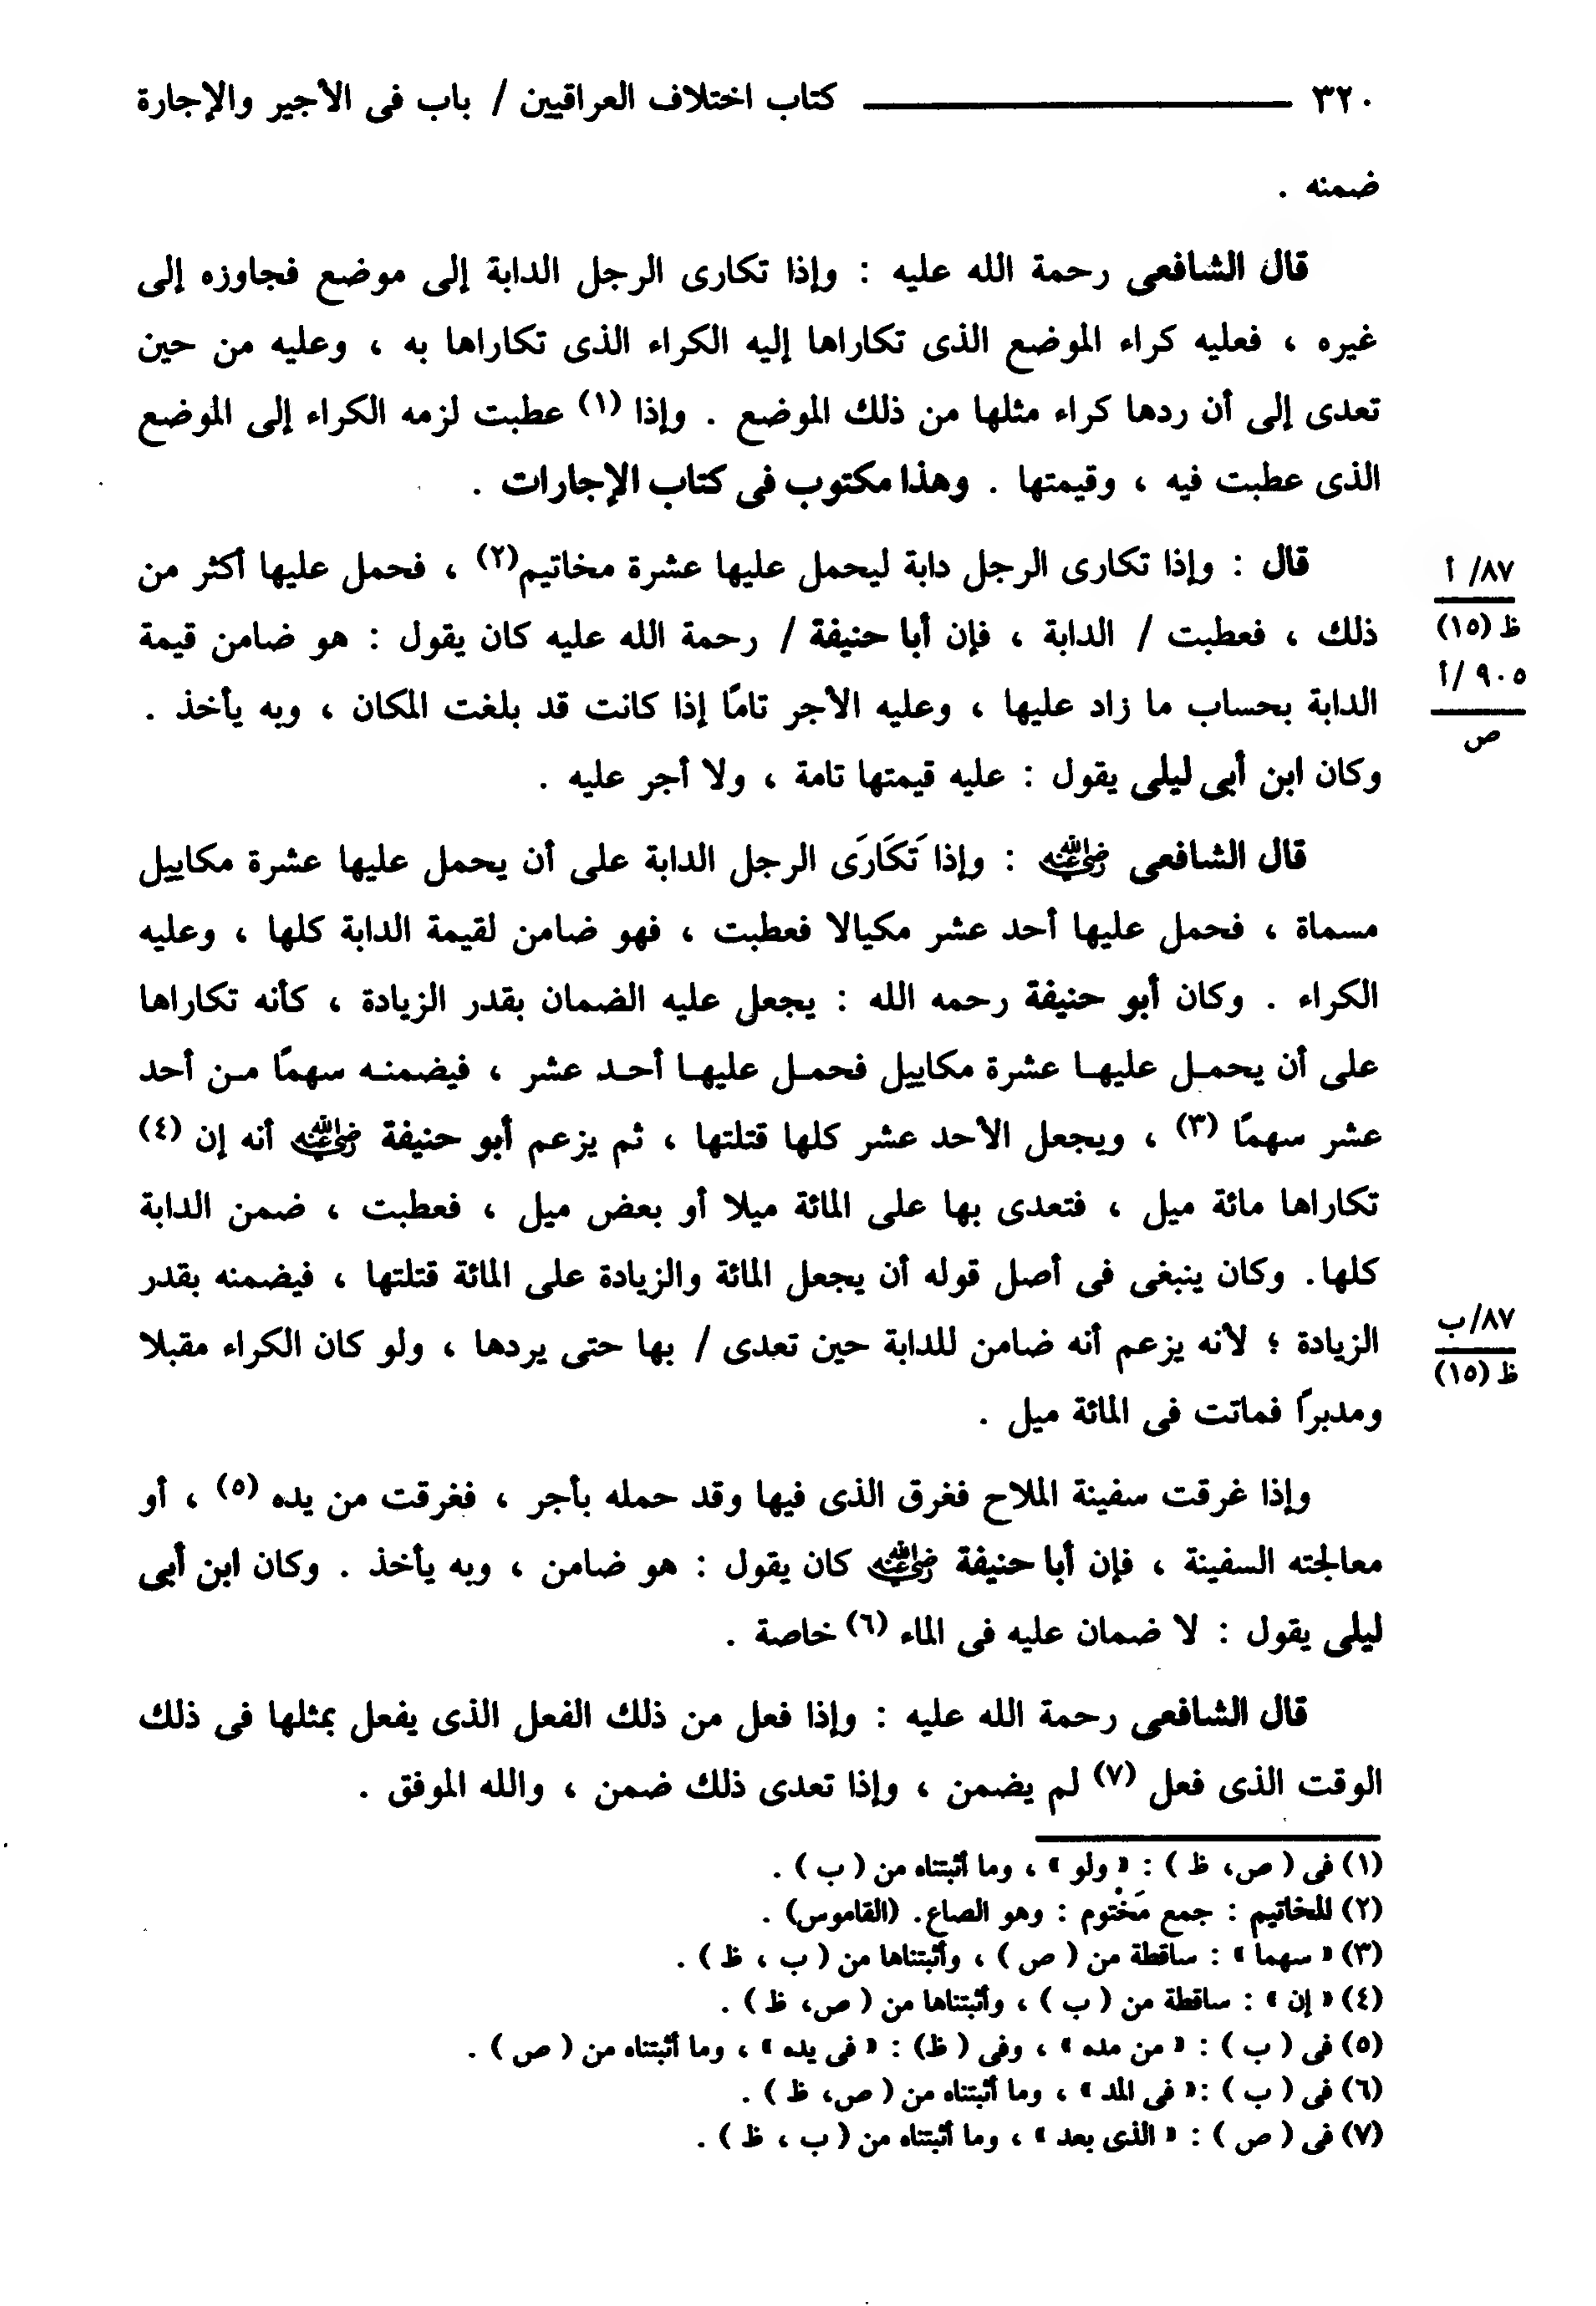 ٣٢٠ ـــــــ كتاب اختلاف العراقيين / باب فى الأجير والإجارة
ضمنه .
قال الشافعى رحمة الله عليه : وإذا تكارى الرجل الدابة إلى موضع فجاوزه إلى
غيره ، فعليه كراء الموضع الذى تكاراها إليه الكراء الذى تكاراها به ، وعليه من حين
تعدى إلى أن ردها كراء مثلها من ذلك الموضع . وإذا (١) عطبت لزمه الكراء إلى الموضع
الذى عطبت فيه ، وقيمتها . وهذا مكتوب فى كتاب الإجارات .
قال : وإذا تكارى الرجل دابة ليحمل عليها عشرة مخاتيم(٢) ، فحمل عليها أكثر من
٨٧/ أ
ذلك ، فعطبت / الدابة ، فإن أبا حنيفة / رحمة الله عليه كان يقول : هو ضامن قيمة
ظ (١٥)
٩٠٥/أ
الدابة بحساب ما زاد عليها ، وعليه الأجر تامًا إذا كانت قد بلغت المكان ، وبه يأخذ .
ص
وكان ابن أبى ليلى يقول : عليه قيمتها تامة ، ولا أجر عليه .
قال الشافعى رضي الله عنه : وإذا تَكَارَى الرجل الدابة على أن يحمل عليها عشرة مكاييل
مسماة ، فحمل عليها أحد عشر مكيالا فعطبت ، فهو ضامن لقيمة الدابة كلها ، وعليه
الكراء . وكان أبو حنيفة رحمه الله : يجعل عليه الضمان بقدر الزيادة ، كأنه تكاراها
على أن يحمـل عليهـا عشرة مكاييل فحمـل عليهـا أحـد عشر ، فيضمنـه سهمًا مـن أحد
عشر سهمًا (٣) ، ويجعل الأحد عشر كلها قتلتها ، ثم يزعم أبو حنيفة رضي الله عنه أنه إن (٤)
تكاراها مائة ميل ، فتعدى بها على المائة ميلا أو بعض ميل ، فعطبت ، ضمن الدابة
كلها. وكان ينبغى فى أصل قوله أن يجعل المائة والزيادة على المائة قتلتها ، فيضمنه بقدر
الزيادة ؛ لأنه يزعم أنه ضامن للدابة حين تعدى / بها حتى يردها ، ولو كان الكراء مقبلا
٨٧/ب
ظ (١٥)
ومدبرًا فماتت فى المائة ميل .
وإذا غرقت سفينة الملاح فغرق الذى فيها وقد حمله بأجر ، فغرقت من يده (٥) ، أو
معالجته السفينة ، فإن أبا حنيفة رضي الله عنه كان يقول : هو ضامن ، وبه يأخذ . وكان ابن أبى
ليلى يقول : لا ضمان عليه فى الماء (٦) خاصة .
قال الشافعى رحمة الله عليه : وإذا فعل من ذلك الفعل الذى يفعل بمثلها فى ذلك
الوقت الذى فعل (٧) لم يضمن ، وإذا تعدى ذلك ضمن ، والله الموفق .
(١) فى ( ص، ظ ) : « ولو » ، وما أثبتناه من ( ب ) .
(٢) المخاتيم : جمع مَخْتوم : وهو الصاع. (القاموس) .
(٣) « سهما » : ساقطة من ( ص ) ، وأثبتناها من ( ب ، ظ ) .
(٤) « إن » : ساقطة من ( ب ) ، وأثبتناها من ( ص، ظ ) .
(٥) فى ( ب ) : « من مده » ، وفى ( ظ) : « فى يده » ، وما أثبتناه من ( ص ) .
(٦) فى ( ب ) :« فى المد » ، وما أثبتناه من ( ص، ظ ) .
(٧) فى ( ص ) : « الذى بعد » ، وما أثبتناه من ( ب ، ظ ) .